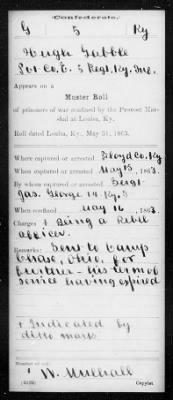 Confederate.
G 5 Ky
Hugh Gabble
Pvt Co. E. 5 Regt. Ky. Inf.
Appears on a
Muster Roll
of prisoners of war confined by the Provost Mar-
shal at Louisa, Ky.
Roll dated Louisa, Ky., May 31, 1863.
Where captured or arrested Floyd Co. Ky
When captured or arrested May 15, 1863.
By whom captured or arrested Sergt
Jas. George 14 Ky.
When confined May 16, 1863.
Charges + Being a Rebel
officer.
Remarks: Sent to Camp
Chase, Ohio, for
his term of
service having expired
+ Indicated by
ditto marks
Number of roll:
1 W. Mulhall
Copyist.